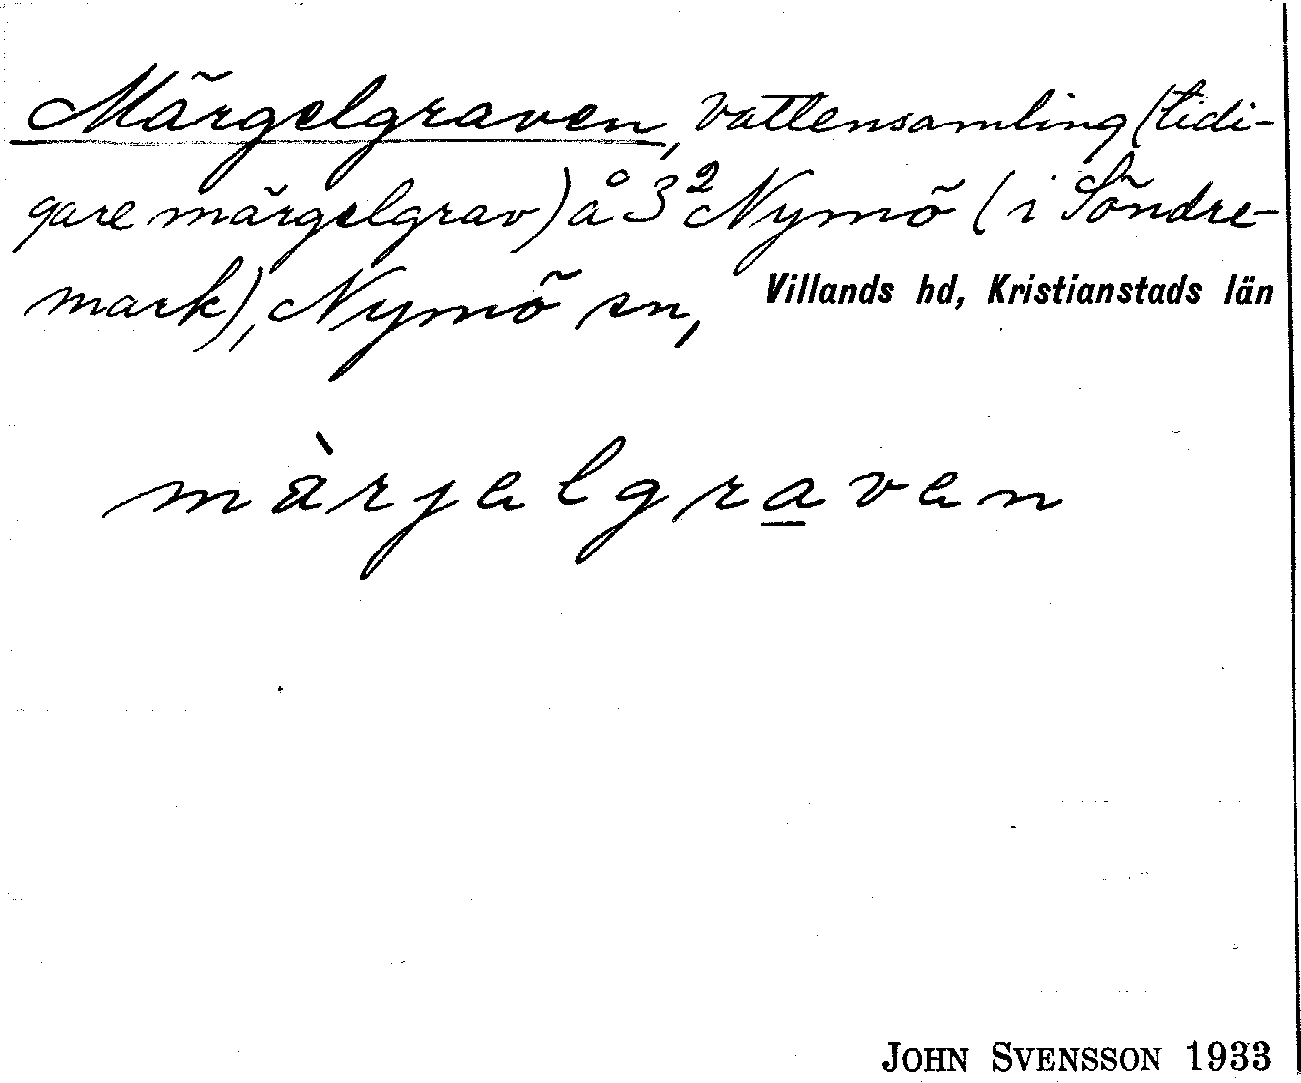 Märgelgraven, vattensamling (tidi-
gare märgelgrav) å 3² Nymö (i Söndre-
mark), Nymö sn, Villands hd, Kristianstads län
màrjelgra̲ven
JOHN SVENSSON 1933